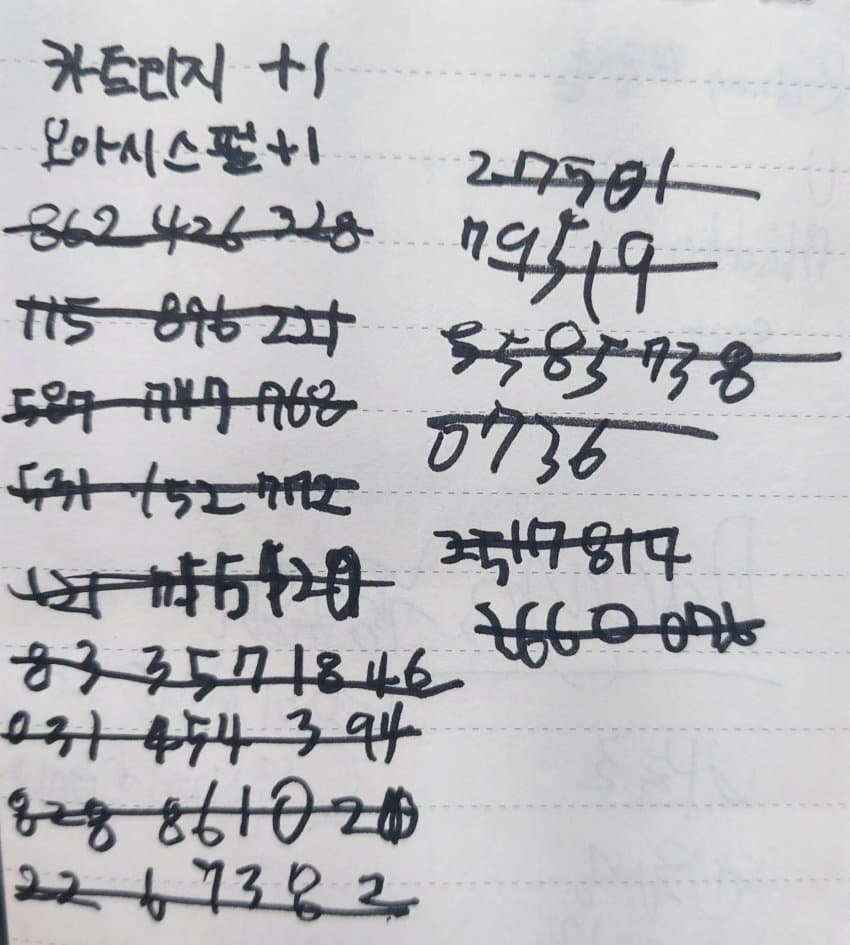 카트리지 +1
오아시스펄+1
862 426 328
115 896 221
587 747 768
531 152 772
83 3571846
031 454 394
828 8610 20
22 6 7382
217501
79519
5585738
0736
2517817
3660 076